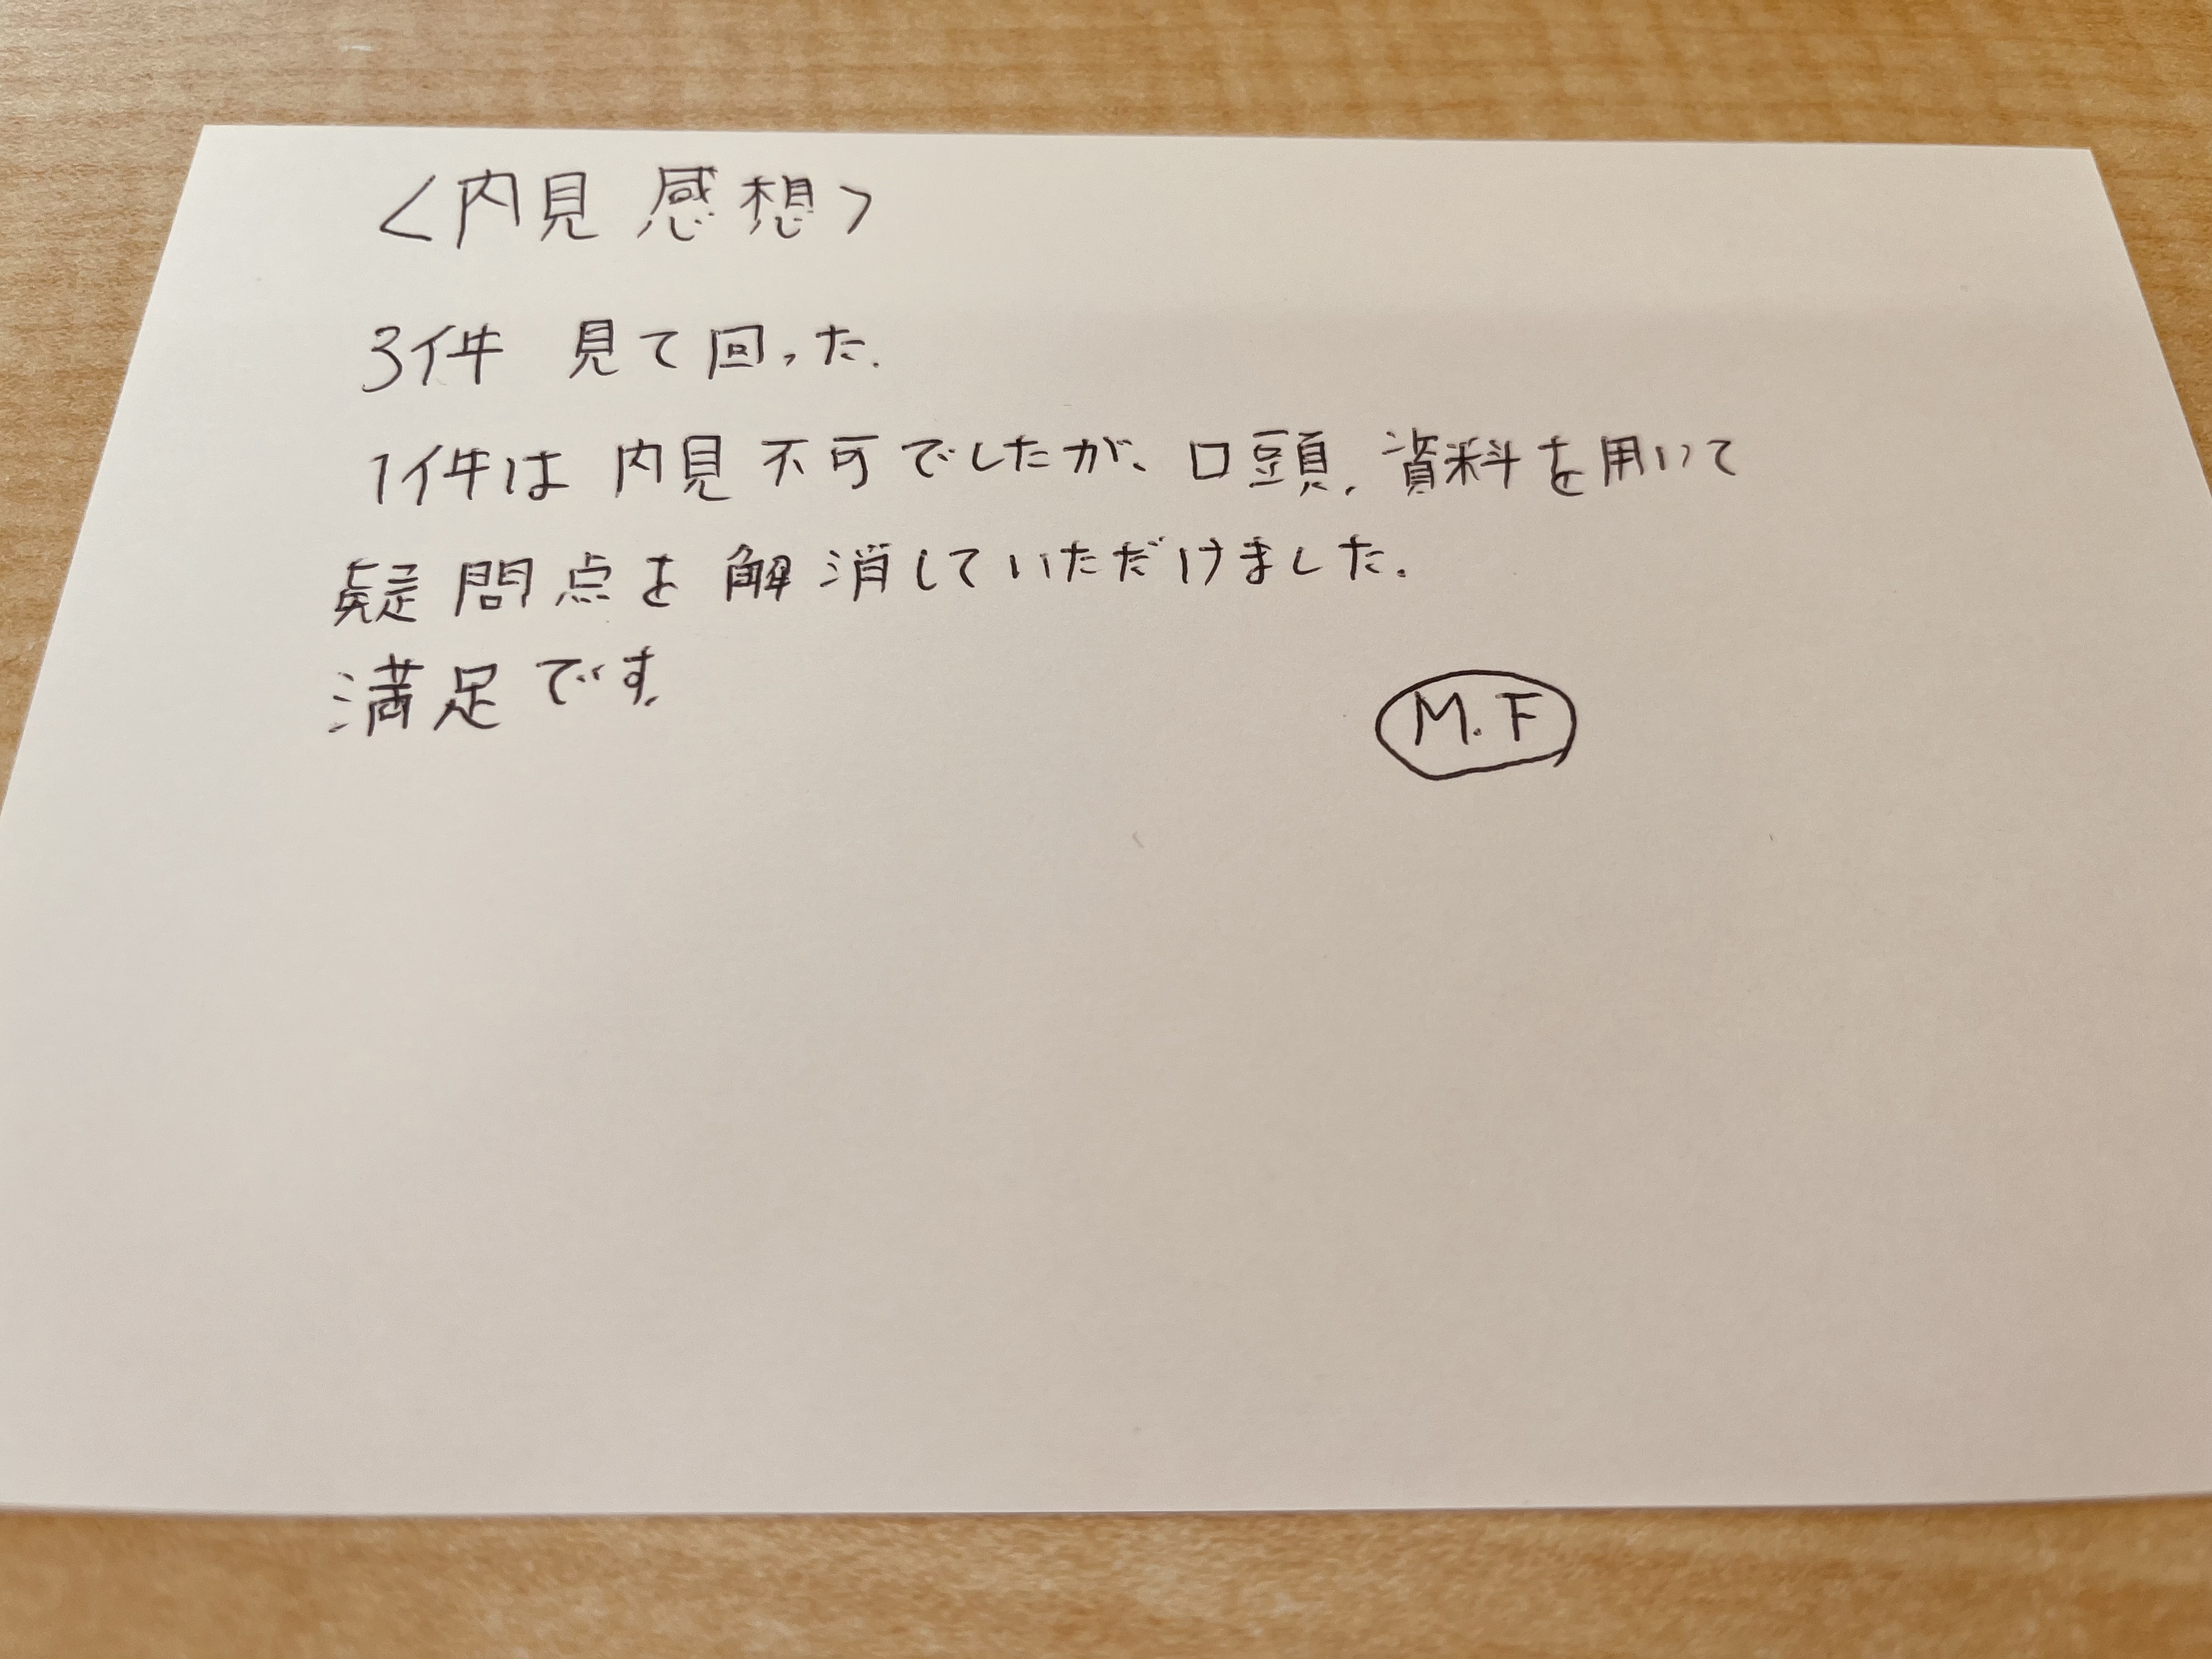 <内見感想>
3件 見て回った.
1件は内見不可でしたが、口頭,資料を用いて
疑問点を解消していただけました.
満足です.
M.F